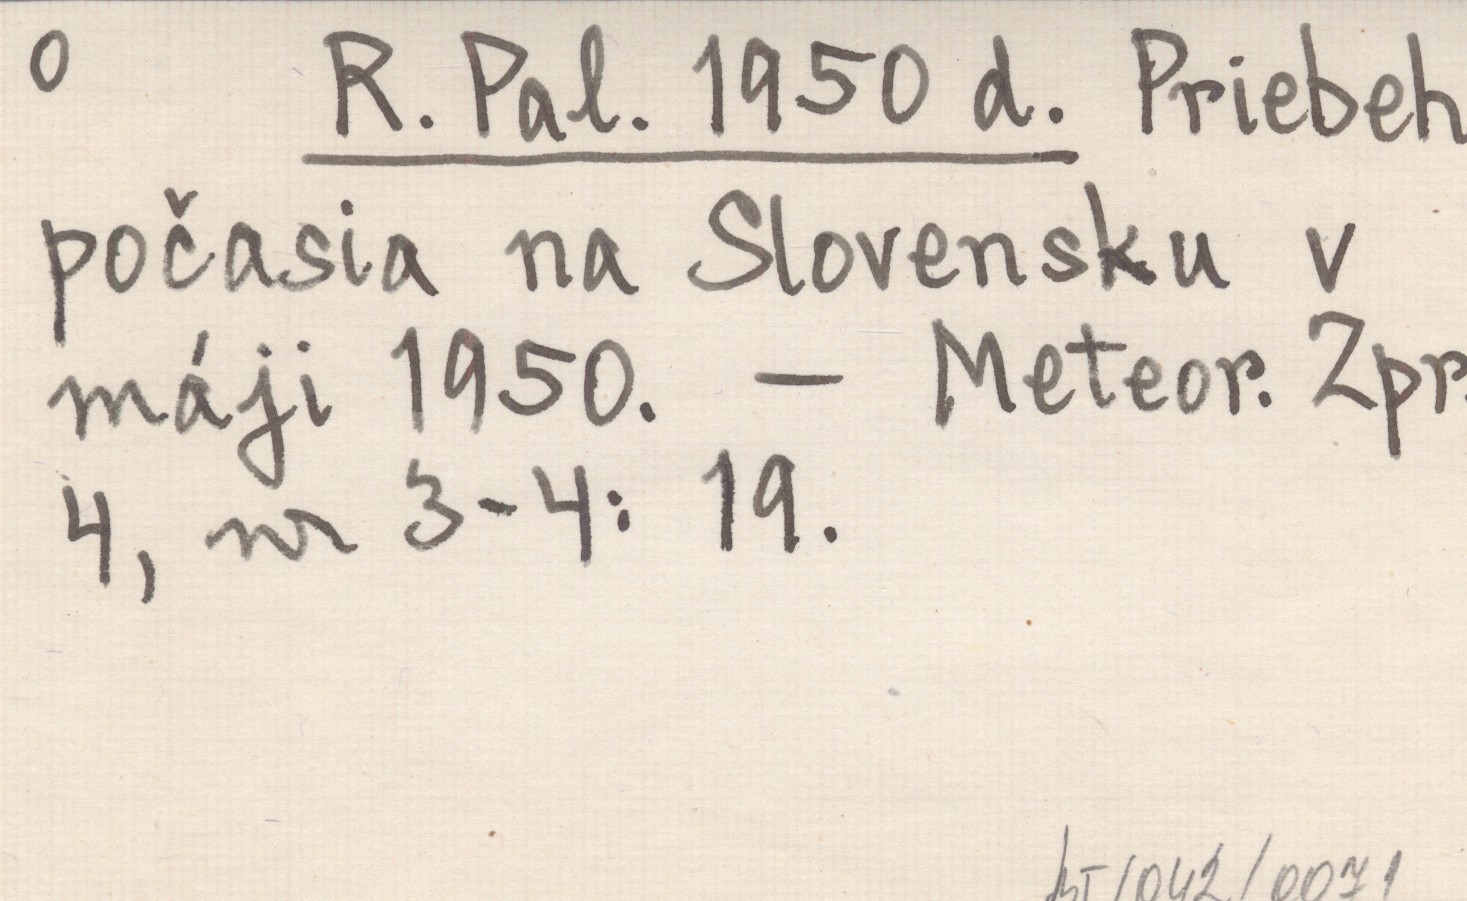 o R. Pal. 1950 d. Priebeh
počasia na Slovensku v
máji 1950. — Meteor. Zpr.
4, nr 3-4: 19.